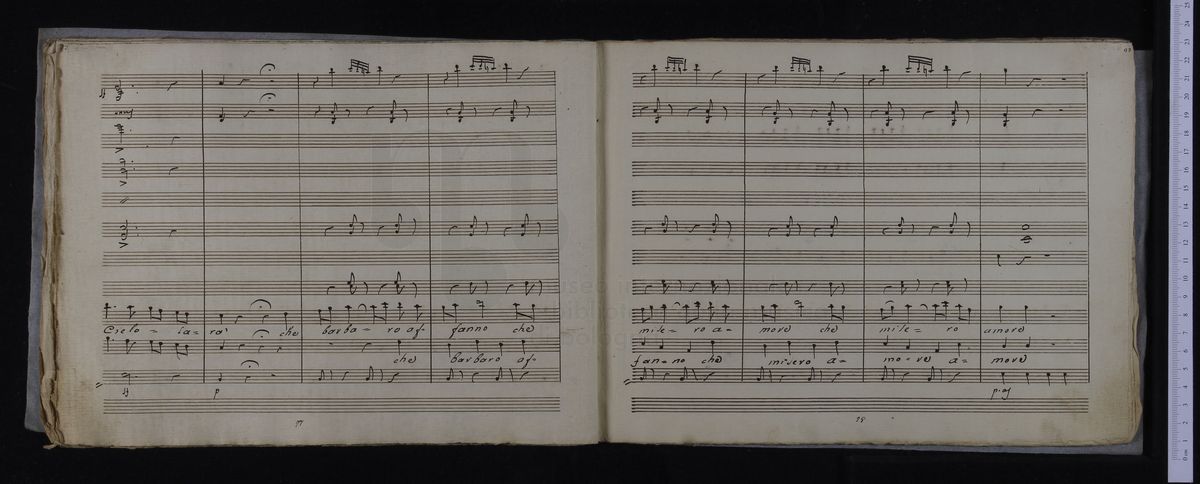 Cielo = la = ra' che barba = ro af fanno che
che barbaro af=
ff p
17
mise = ro a = more che mise = ro amore
fan = no che misero a = mo = re a = more
18